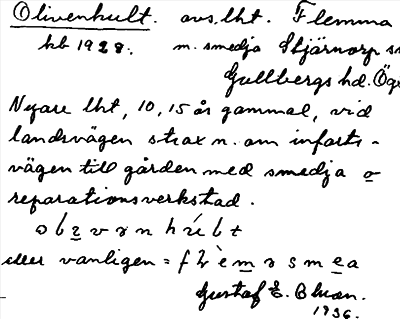 Olivenhult. avs. lht. Flemma
hb 1928. n. smedja Stjärnorp sn
Gullbergs hd. Ög.
Nyare lht, 10, 15 år gammal, vid
landsvägen strax n. om infarts-
vägen till gården med smedja o
reparationsverkstad.
eller vanligen =
Gustaf E. Blman.
1936.